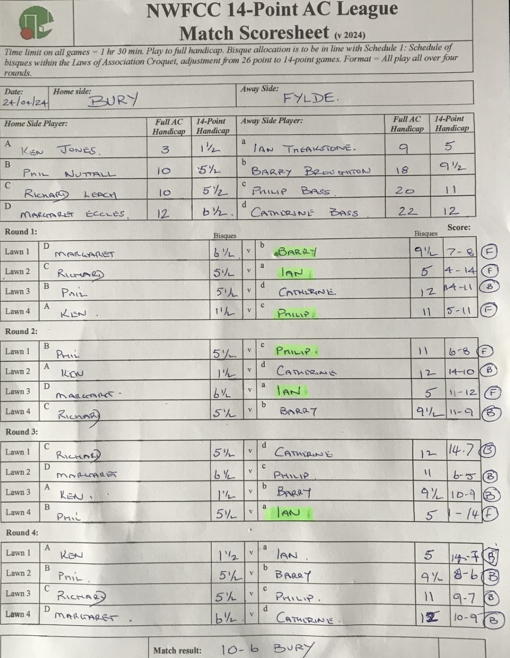 NWFCC 14-Point AC League
Match Scoresheet (v 2024)
Time limit on all games = 1 hr 30 min. Play to full handicap. Bisque allocation is to be in line with Schedule 1: Schedule of
bisques within the Laws of Association Croquet, adjustment from 26 point to 14-point games. Format = All play all over four
rounds.
Date: 24/04/24 Home side: BURY Away Side: FYLDE.
Home Side Player: Full AC Handicap 14-Point Handicap Away Side Player: Full AC Handicap 14-Point Handicap
A KEN JONES. 3 1½ a IAN THEAKSTONE. 9 5
B PHIL NUTTALL 10 5½ b BARRY BROUGHTON 18 9½
C RICHARD LEACH 10 5½ c PHILIP BASS 20 11
D MARGARET ECCLES. 12 6½. d CATHERINE BASS 22 12
Round 1: Bisques Bisques Score:
Lawn 1 D MARGARET 6½ v b BARRY 9½ 7-8 F
Lawn 2 C RICHARD 5½ v a IAN 5 4-14 F
Lawn 3 B PHIL 5½ v d CATHERINE. 12 14-11 B
Lawn 4 A KEN. 1½ v c PHILIP. 11 5-11 F
Round 2:
Lawn 1 B PHIL 5½ v c PHILIP. 11 6-8 F
Lawn 2 A KEN 1½ v d CATHERINE. 12 14-10 B
Lawn 3 D MARGARET. 6½ v a IAN 5 11-12 F
Lawn 4 C RICHARD 5½ v b BARRY 9½ 11-9 B
Round 3:
Lawn 1 C RICHARD 5½ v d CATHERINE 12 14-7 B
Lawn 2 D MARGARET 6½ v c PHILIP 11 6-5 B
Lawn 3 A KEN. 1½ v b BARRY 9½ 10-9 B
Lawn 4 B PHIL 5½ v a IAN 5 1-14 F
Round 4:
Lawn 1 A KEN 1½ v a IAN. 5 14-7 B
Lawn 2 B PHIL. 5½ v b BARRY 9½ 8-6 B
Lawn 3 C RICHARD 5½ v c PHILIP. 11 9-7 B
Lawn 4 D MARGARET. 6½ v d CATHERINE. 12 10-9 B
Match result: 10-6 BURY